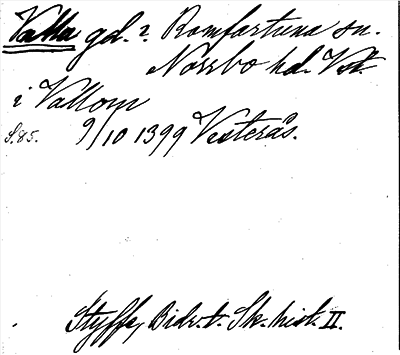 Valla gd. i Romfartuna sn.
Norrbo hd. Vstm.
i Vallom
S. 85. 9/10 1399 Vesterås.
Styffe, Bidr. t. Sk. hist. II.